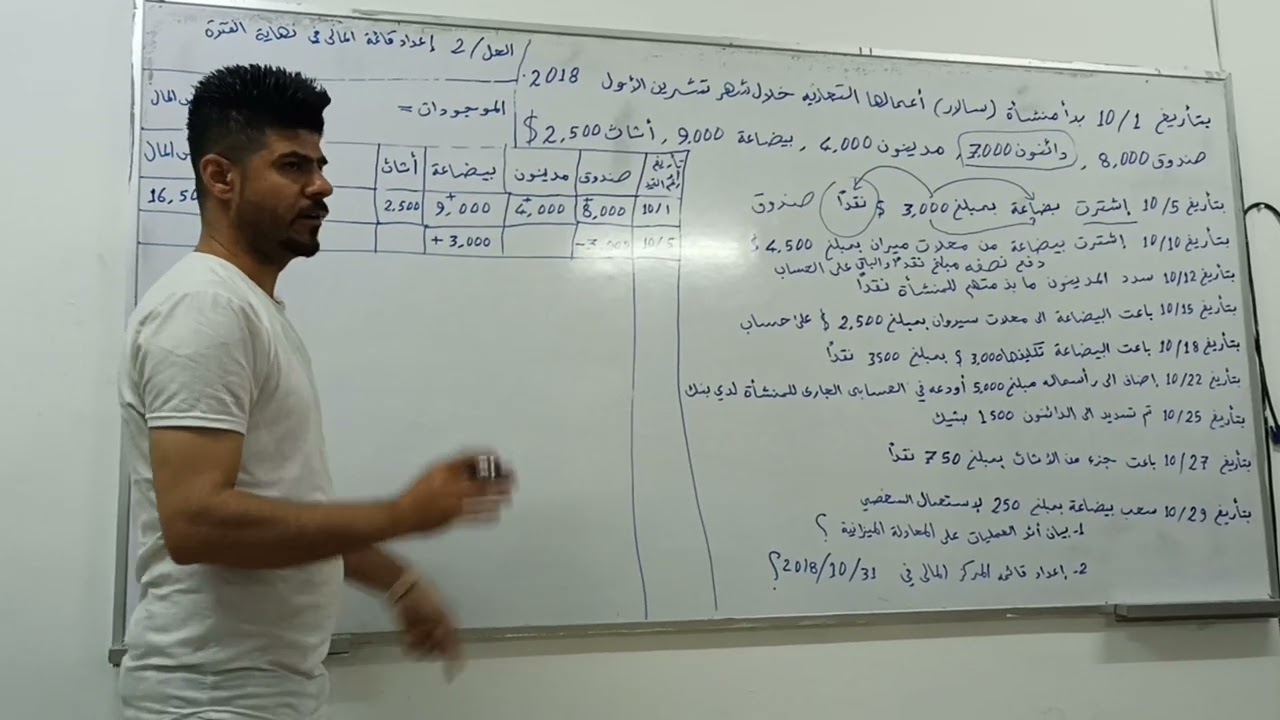 بتأريخ 10/1 بدأ منشأة (سالار) أعمالها التجارية خلال شهر تشرين الأول 2018.
صندوق 8,000 , دائنون 7,000 , مدينون 4,000 , بيضاعة 9,000 , أثاث 2,500 $
بتأريخ 10/5 إشترت بضاعة بمبلغ 3,000 $ نقداً صندوق
بتأريخ 10/10 إشترت بيضاعة من محلات ميران بمبلغ 4,500 $
دفع نصفه مبلغ نقداً والباقي على الحساب
بتأريخ 10/12 سدد المدينون ما بذمتهم للمنشأة نقداً
بتأريخ 10/15 باعت البيضاعة الى محلات سيروان بمبلغ 2,500 $ على حساب
بتأريخ 10/18 باعت البيضاعة تكليفتها 3,000 $ بمبلغ 3500 نقداً
بتأريخ 10/22 إضاف الى رأسماله مبلغ 5,000 أودعه في الحسابى الجارى للمنشأة لدي بنك
بتأريخ 10/25 تم تسديد الى الدائنون 1500 بشيك
بتأريخ 10/27 باعت جزء من الأثاث بمبلغ 750 نقداً
بتأريخ 10/29 سحب بيضاعة بمبلغ 250 لإستعمال الشخصي
1- بيان أثر العمليات على المعادلة الميزانية ؟
2- إعداد قائمه المركز المالي في 2018/10/31 ؟
الحل / 2 إعداد قائمة المالى في نهاية الفترة
الموجودات = المال
تأريخ رقم القيد صندوق مدينون بيضاعة أثاث المال
10/1 +8,000 +4,000 +9,000 2,500 16,50
10/5 -3,000 +3,000